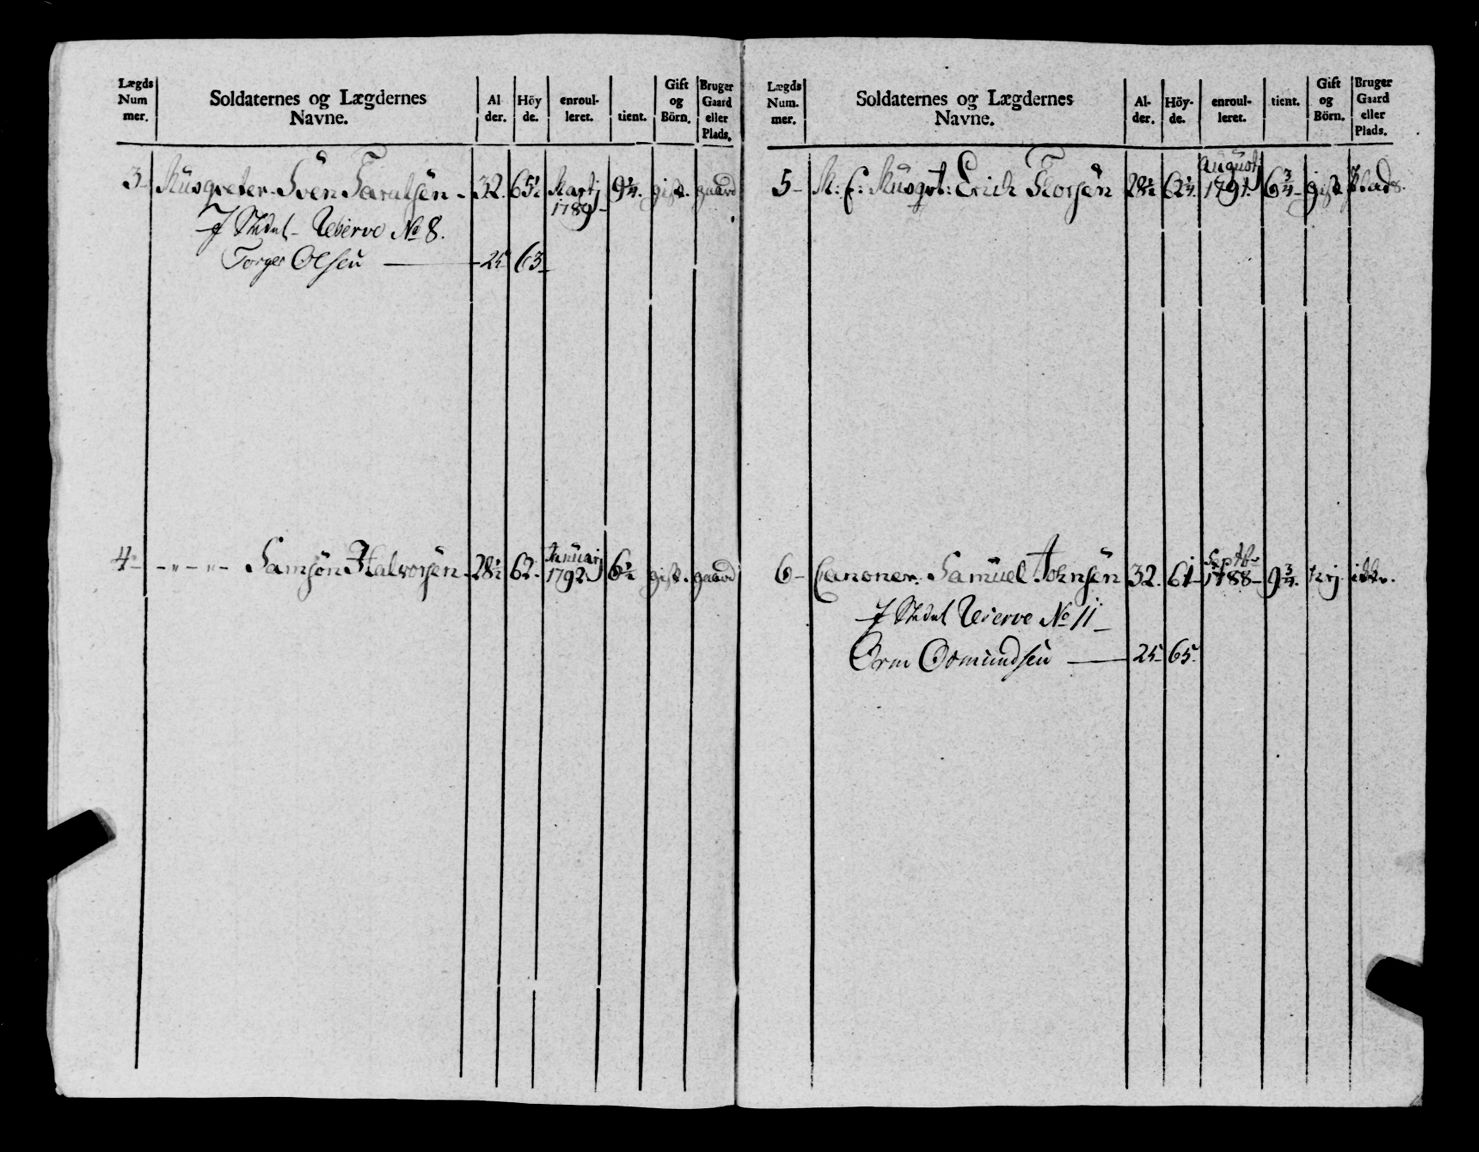 Lægds Num mer. | Soldaternes og Lægdernes Navne. | Al der. | Höy de. | enroul- leret. | tient. | Gift og Börn. | Bruger Gaard eller Plads.
3 - Musqveter. Sven Taralsen - 32. 65½ Martj 1789 - 9¼. gift. gaard.
I Stedet - Reserve No 8.
Torger Olsen — 25 63 -
4 - - " - " - Samson Halvorsen - 28½ 62. Januarj 1792 6½ gift. gaard
Lægds Num. mer. | Soldaternes og Lægdernes Navne. | Al- der. | Höy- de. | enroul- leret. | tient. | Gift og Börn. | Bruger Gaard eller Plads.
5 - M: C: Musqvt: Erich Torsen 28½ 62¼. Augustj 1791. 6¾ - gift Plads.
6 - Canoner. Samuel Johnsen 32. 61 - Septb. 1788 - 9¾. frj. ikke.
I Stedet Reserve No 11 -
Orm Osmundsen — 25 - 65.